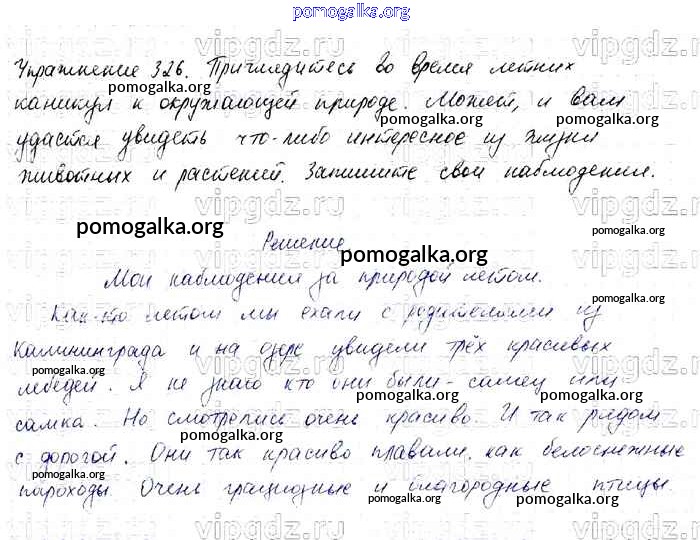 pomogalka.org
Упражнение 326. Приглядитесь во время летних
каникул к окружающей природе. Может, и вам
удастся увидеть что-либо интересное из жизни
животных и растений. Запишите свои наблюдения.
Решение
Мои наблюдения за природой летом.
Как-то летом мы ехали с родителями из
Калининграда и на озере увидели трёх красивых
лебедей. Я не знаю кто они были - самец или
самка. Но смотрелись очень красиво. И так рядом
с дорогой. Они так красиво плавали, как белоснежные
пароходы. Очень грациозные и благородные птицы.